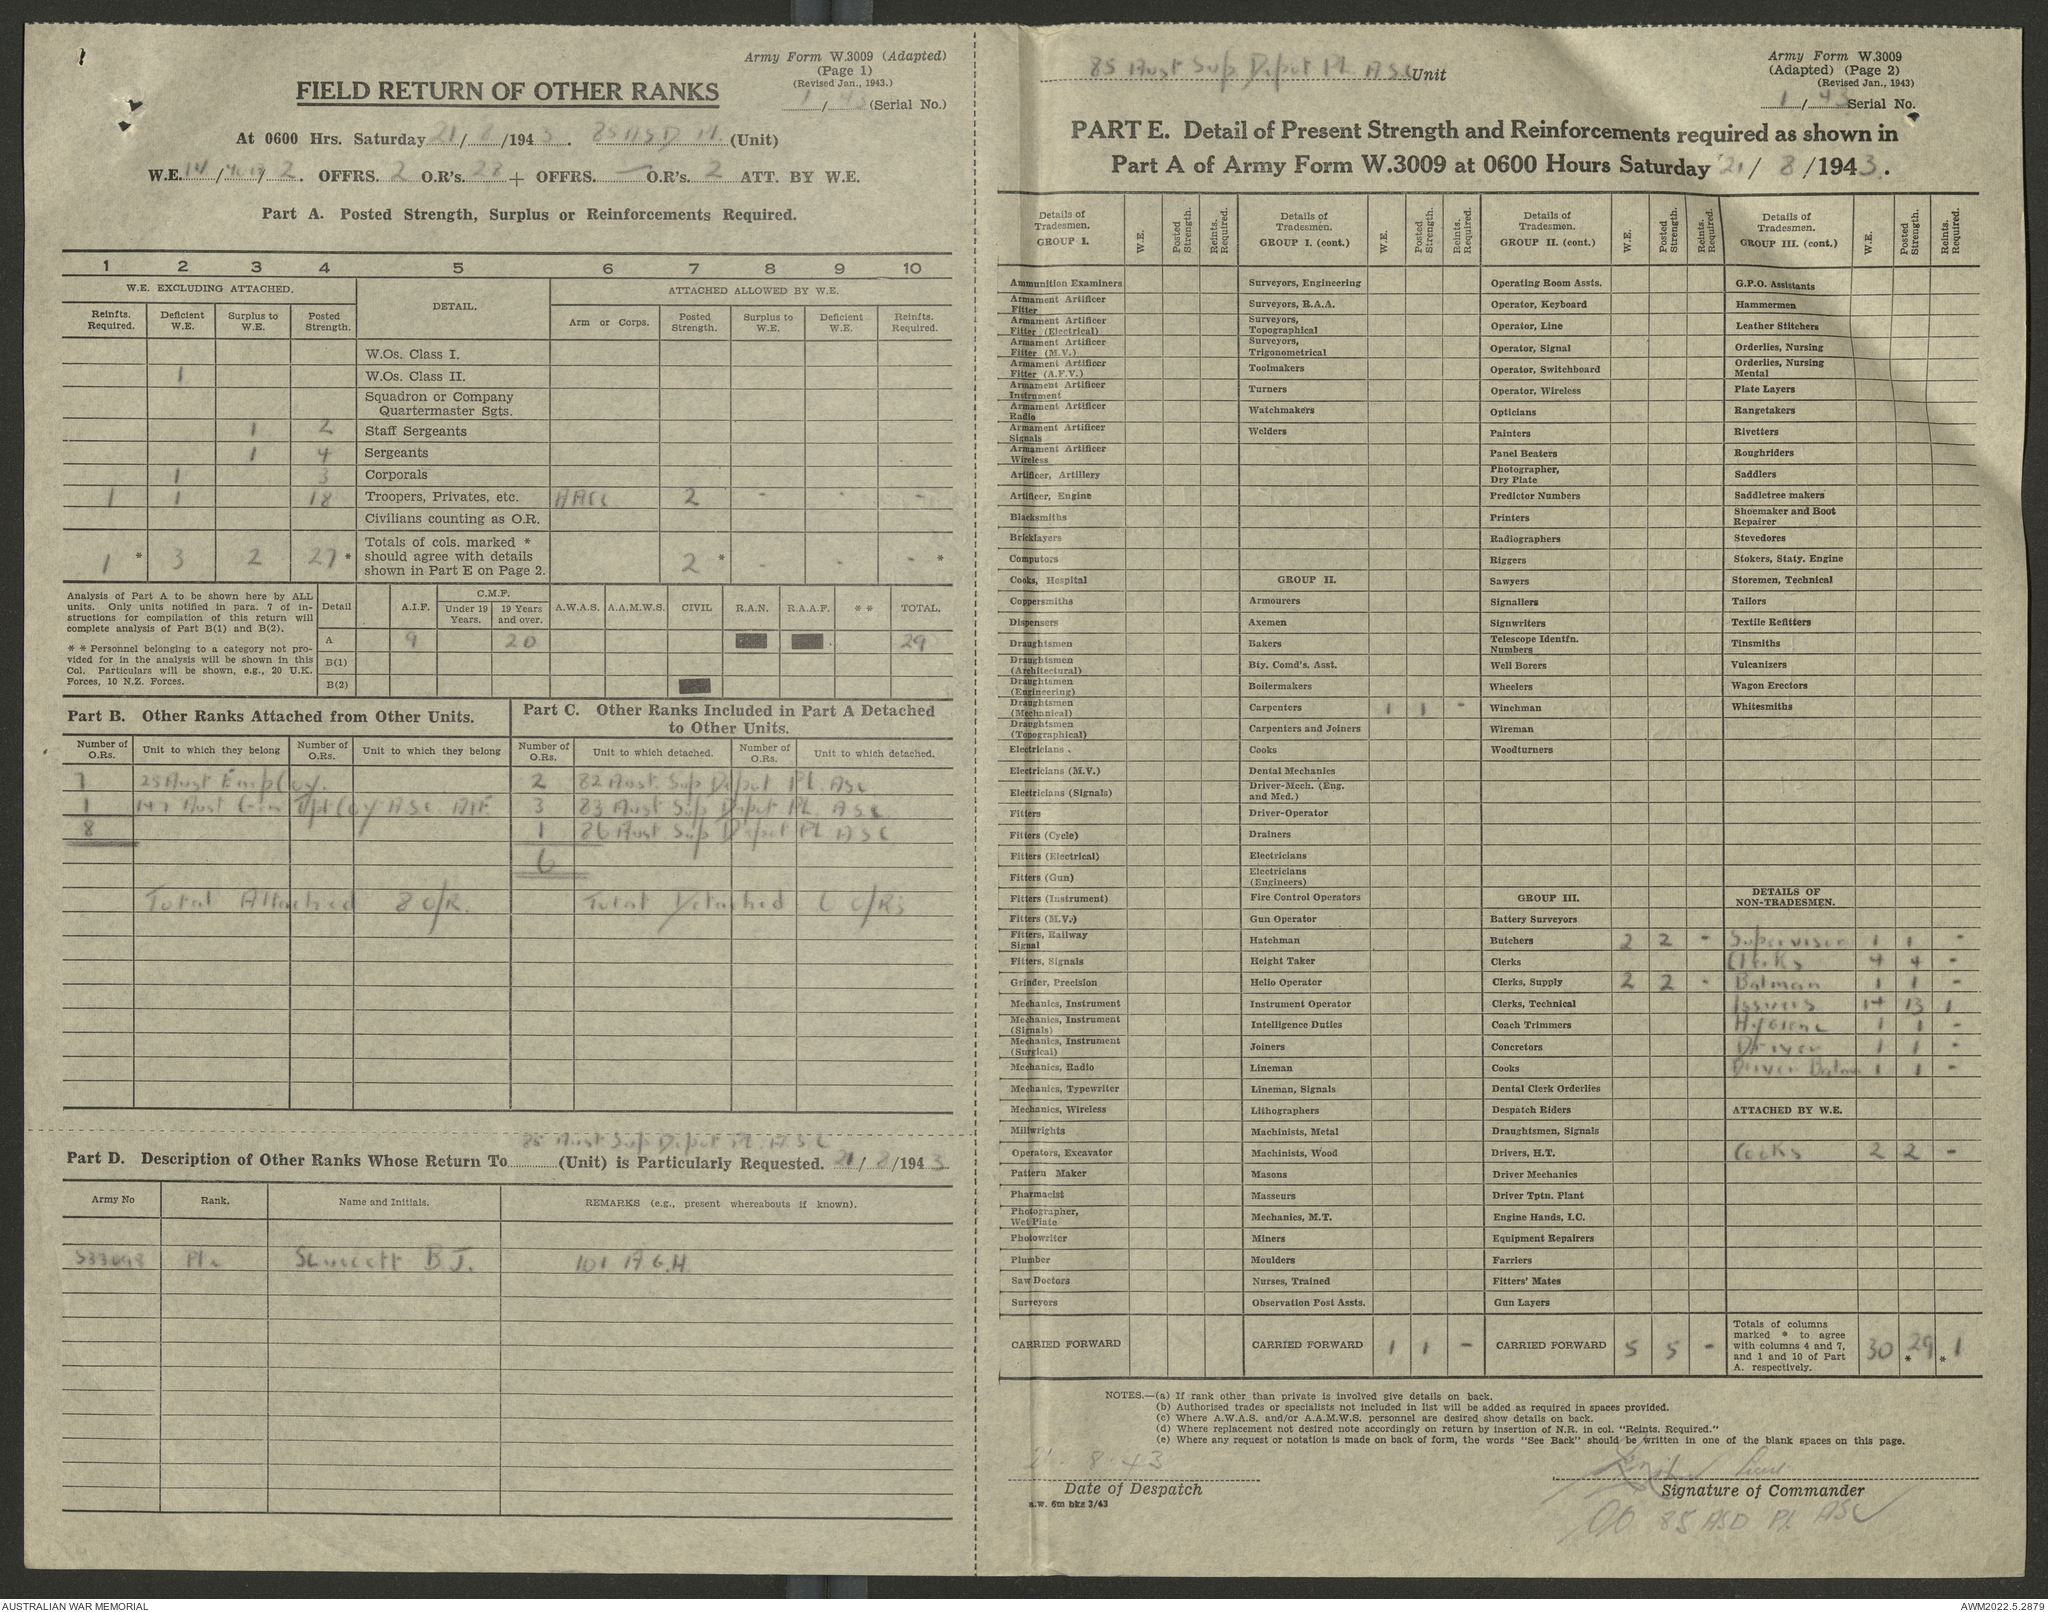 Army Form W.3009 (Adapted)
(Page 1)
(Revised Jan., 1943.)
1/43 (Serial No.)
FIELD RETURN OF OTHER RANKS
At 0600 Hrs. Saturday 21/8/1943. 85 ASD Pl. (Unit)
W.E. OFFRS. 2 O.R's. 28 + OFFRS. — O.R's. 2 ATT. BY W.E.
Part A. Posted Strength, Surplus or Reinforcements Required.
1 2 3 4 5 6 7 8 9 10
W.E. EXCLUDING ATTACHED. DETAIL. ATTACHED ALLOWED BY W.E.
Reinfts. Required. Deficient W.E. Surplus to W.E. Posted Strength. Arm or Corps. Posted Strength. Surplus to W.E. Deficient W.E. Reinfts. Required.
W.Os. Class I.
1 W.Os. Class II.
Squadron or Company Quartermaster Sgts.
1 2 Staff Sergeants
1 4 Sergeants
1 3 Corporals
1 1 18 Troopers, Privates, etc. AACC 2 - - -
Civilians counting as O.R.
1 * 3 2 27 * Totals of cols. marked * should agree with details shown in Part E on Page 2. 2 * - - - *
Analysis of Part A to be shown here by ALL units. Only units notified in para. 7 of instructions for compilation of this return will complete analysis of Part B(1) and B(2).
* * Personnel belonging to a category not provided for in the analysis will be shown in this Col. Particulars will be shown, e.g., 20 U.K. Forces, 10 N.Z. Forces.
Detail A.I.F. C.M.F. Under 19 Years. 19 Years and over. A.W.A.S. A.A.M.W.S. CIVIL R.A.N. R.A.A.F. * * TOTAL.
A 9 20 29
B(1)
B(2)
Part B. Other Ranks Attached from Other Units.
Number of O.Rs. Unit to which they belong Number of O.Rs. Unit to which they belong
7 25 Aust Employ.
1 147 Aust Gen Tpt Coy ASC AIF
8
Total Attached 8 O/R.
Part C. Other Ranks Included in Part A Detached to Other Units.
Number of O.Rs. Unit to which detached. Number of O.Rs. Unit to which detached.
2 82 Aust. Sup Depot Pl. ASC
3 83 Aust Sup Depot Pl. ASC
1 86 Aust. Sup Depot Pl ASC
6
Total Detached 6 O/Rs
85 Aust Sup Depot Pl ASC
Part D. Description of Other Ranks Whose Return To (Unit) is Particularly Requested. 21/8/1943
Army No Rank. Name and Initials. REMARKS (e.g., present whereabouts if known).
Pte B.J. 101 A.G.H.
85 Aust Sup Depot Pl ASC Unit
Army Form W.3009
(Adapted) (Page 2)
(Revised Jan., 1943)
1/43 Serial No.
PART E. Detail of Present Strength and Reinforcements required as shown in
Part A of Army Form W.3009 at 0600 Hours Saturday 21/8/1943.
Details of Tradesmen. GROUP I. W.E. Posted Strength. Reints. Required.
Ammunition Examiners
Armament Artificer Fitter
Armament Artificer Fitter (Electrical)
Armament Artificer Fitter (M.V.)
Armament Artificer Fitter (A.F.V.)
Armament Artificer Instrument
Armament Artificer Radio
Armament Artificer Signals
Armament Artificer Wireless
Artificer, Artillery
Artificer, Engine
Blacksmiths
Bricklayers
Computors
Cooks, Hospital
Coppersmiths
Dispensers
Draughtsmen
Draughtsmen (Architectural)
Draughtsmen (Engineering)
Draughtsmen (Mechanical)
Draughtsmen (Topographical)
Electricians
Electricians (M.V.)
Electricians (Signals)
Fitters
Fitters (Cycle)
Fitters (Electrical)
Fitters (Gun)
Fitters (Instrument)
Fitters (M.V.)
Fitters, Railway Signal
Fitters, Signals
Grinder, Precision
Mechanics, Instrument
Mechanics, Instrument (Signals)
Mechanics, Instrument (Surgical)
Mechanics, Radio
Mechanics, Typewriter
Mechanics, Wireless
Millwrights
Operators, Excavator
Pattern Maker
Pharmacist
Photographer, Wet Plate
Photowriter
Plumber
Saw Doctors
Surveyors
CARRIED FORWARD
Details of Tradesmen. GROUP I. (cont.) W.E. Posted Strength. Reints. Required.
Surveyors, Engineering
Surveyors, R.A.A.
Surveyors, Topographical
Surveyors, Trigonometrical
Toolmakers
Turners
Watchmakers
Welders
GROUP II.
Armourers
Axemen
Bakers
Bty. Comd's. Asst.
Boilermakers
Carpenters 1 1 -
Carpenters and Joiners
Cooks
Dental Mechanics
Driver-Mech. (Eng. and Med.)
Driver-Operator
Drainers
Electricians
Electricians (Engineers)
Fire Control Operators
Gun Operator
Hatchman
Height Taker
Hello Operator
Instrument Operator
Intelligence Duties
Joiners
Lineman
Lineman, Signals
Lithographers
Machinists, Metal
Machinists, Wood
Masons
Masseurs
Mechanics, M.T.
Miners
Moulders
Nurses, Trained
Observation Post Assts.
CARRIED FORWARD 1 1 -
Details of Tradesmen. GROUP II. (cont.) W.E. Posted Strength. Reints. Required.
Operating Room Assts.
Operator, Keyboard
Operator, Line
Operator, Signal
Operator, Switchboard
Operator, Wireless
Opticians
Painters
Panel Beaters
Photographer, Dry Plate
Predictor Numbers
Printers
Radiographers
Riggers
Sawyers
Signallers
Signwriters
Telescope Identfn. Numbers
Well Borers
Wheelers
Winchman
Wireman
Woodturners
GROUP III.
Battery Surveyors
Butchers 2 2 -
Clerks
Clerks, Supply 2 2 -
Clerks, Technical
Coach Trimmers
Concretors
Cooks
Dental Clerk Orderlies
Despatch Riders
Draughtsmen, Signals
Drivers, H.T.
Driver Mechanics
Driver Tptn. Plant
Engine Hands, I.C.
Equipment Repairers
Farriers
Fitters' Mates
Gun Layers
CARRIED FORWARD 5 5 -
Details of Tradesmen. GROUP III. (cont.) W.E. Posted Strength. Reints. Required.
G.P.O. Assistants
Hammermen
Leather Stitchers
Orderlies, Nursing
Orderlies, Nursing Mental
Plate Layers
Rangetakers
Rivetters
Roughriders
Saddlers
Saddletree makers
Shoemaker and Boot Repairer
Stevedores
Stokers, Staty. Engine
Storemen, Technical
Tailors
Textile Refitters
Tinsmiths
Vulcanizers
Wagon Erectors
Whitesmiths
DETAILS OF NON-TRADESMEN.
Supervisor 1 1 -
Clerks 4 4 -
Batman 1 1 -
Issuers 14 13 1
Hygiene 1 1 -
Driver 1 1 -
Driver Batman 1 1 -
ATTACHED BY W.E.
Cooks 2 2 -
Totals of columns marked * to agree with columns 4 and 7, and 1 and 10 of Part A. respectively. 30 29 * * 1
NOTES.—(a) If rank other than private is involved give details on back.
(b) Authorised trades or specialists not included in list will be added as required in spaces provided.
(c) Where A.W.A.S. and/or A.A.M.W.S. personnel are desired show details on back.
(d) Where replacement not desired note accordingly on return by insertion of N.R. in col. "Reints. Required."
(e) Where any request or notation is made on back of form, the words "See Back" should be written in one of the blank spaces on this page.
21 . 8 . 43
Date of Despatch
a.w. 6m bks 3/43
Lieut.
Signature of Commander
OC 85 ASD Pl. ASC
AUSTRALIAN WAR MEMORIAL
AWM2022.5.2879